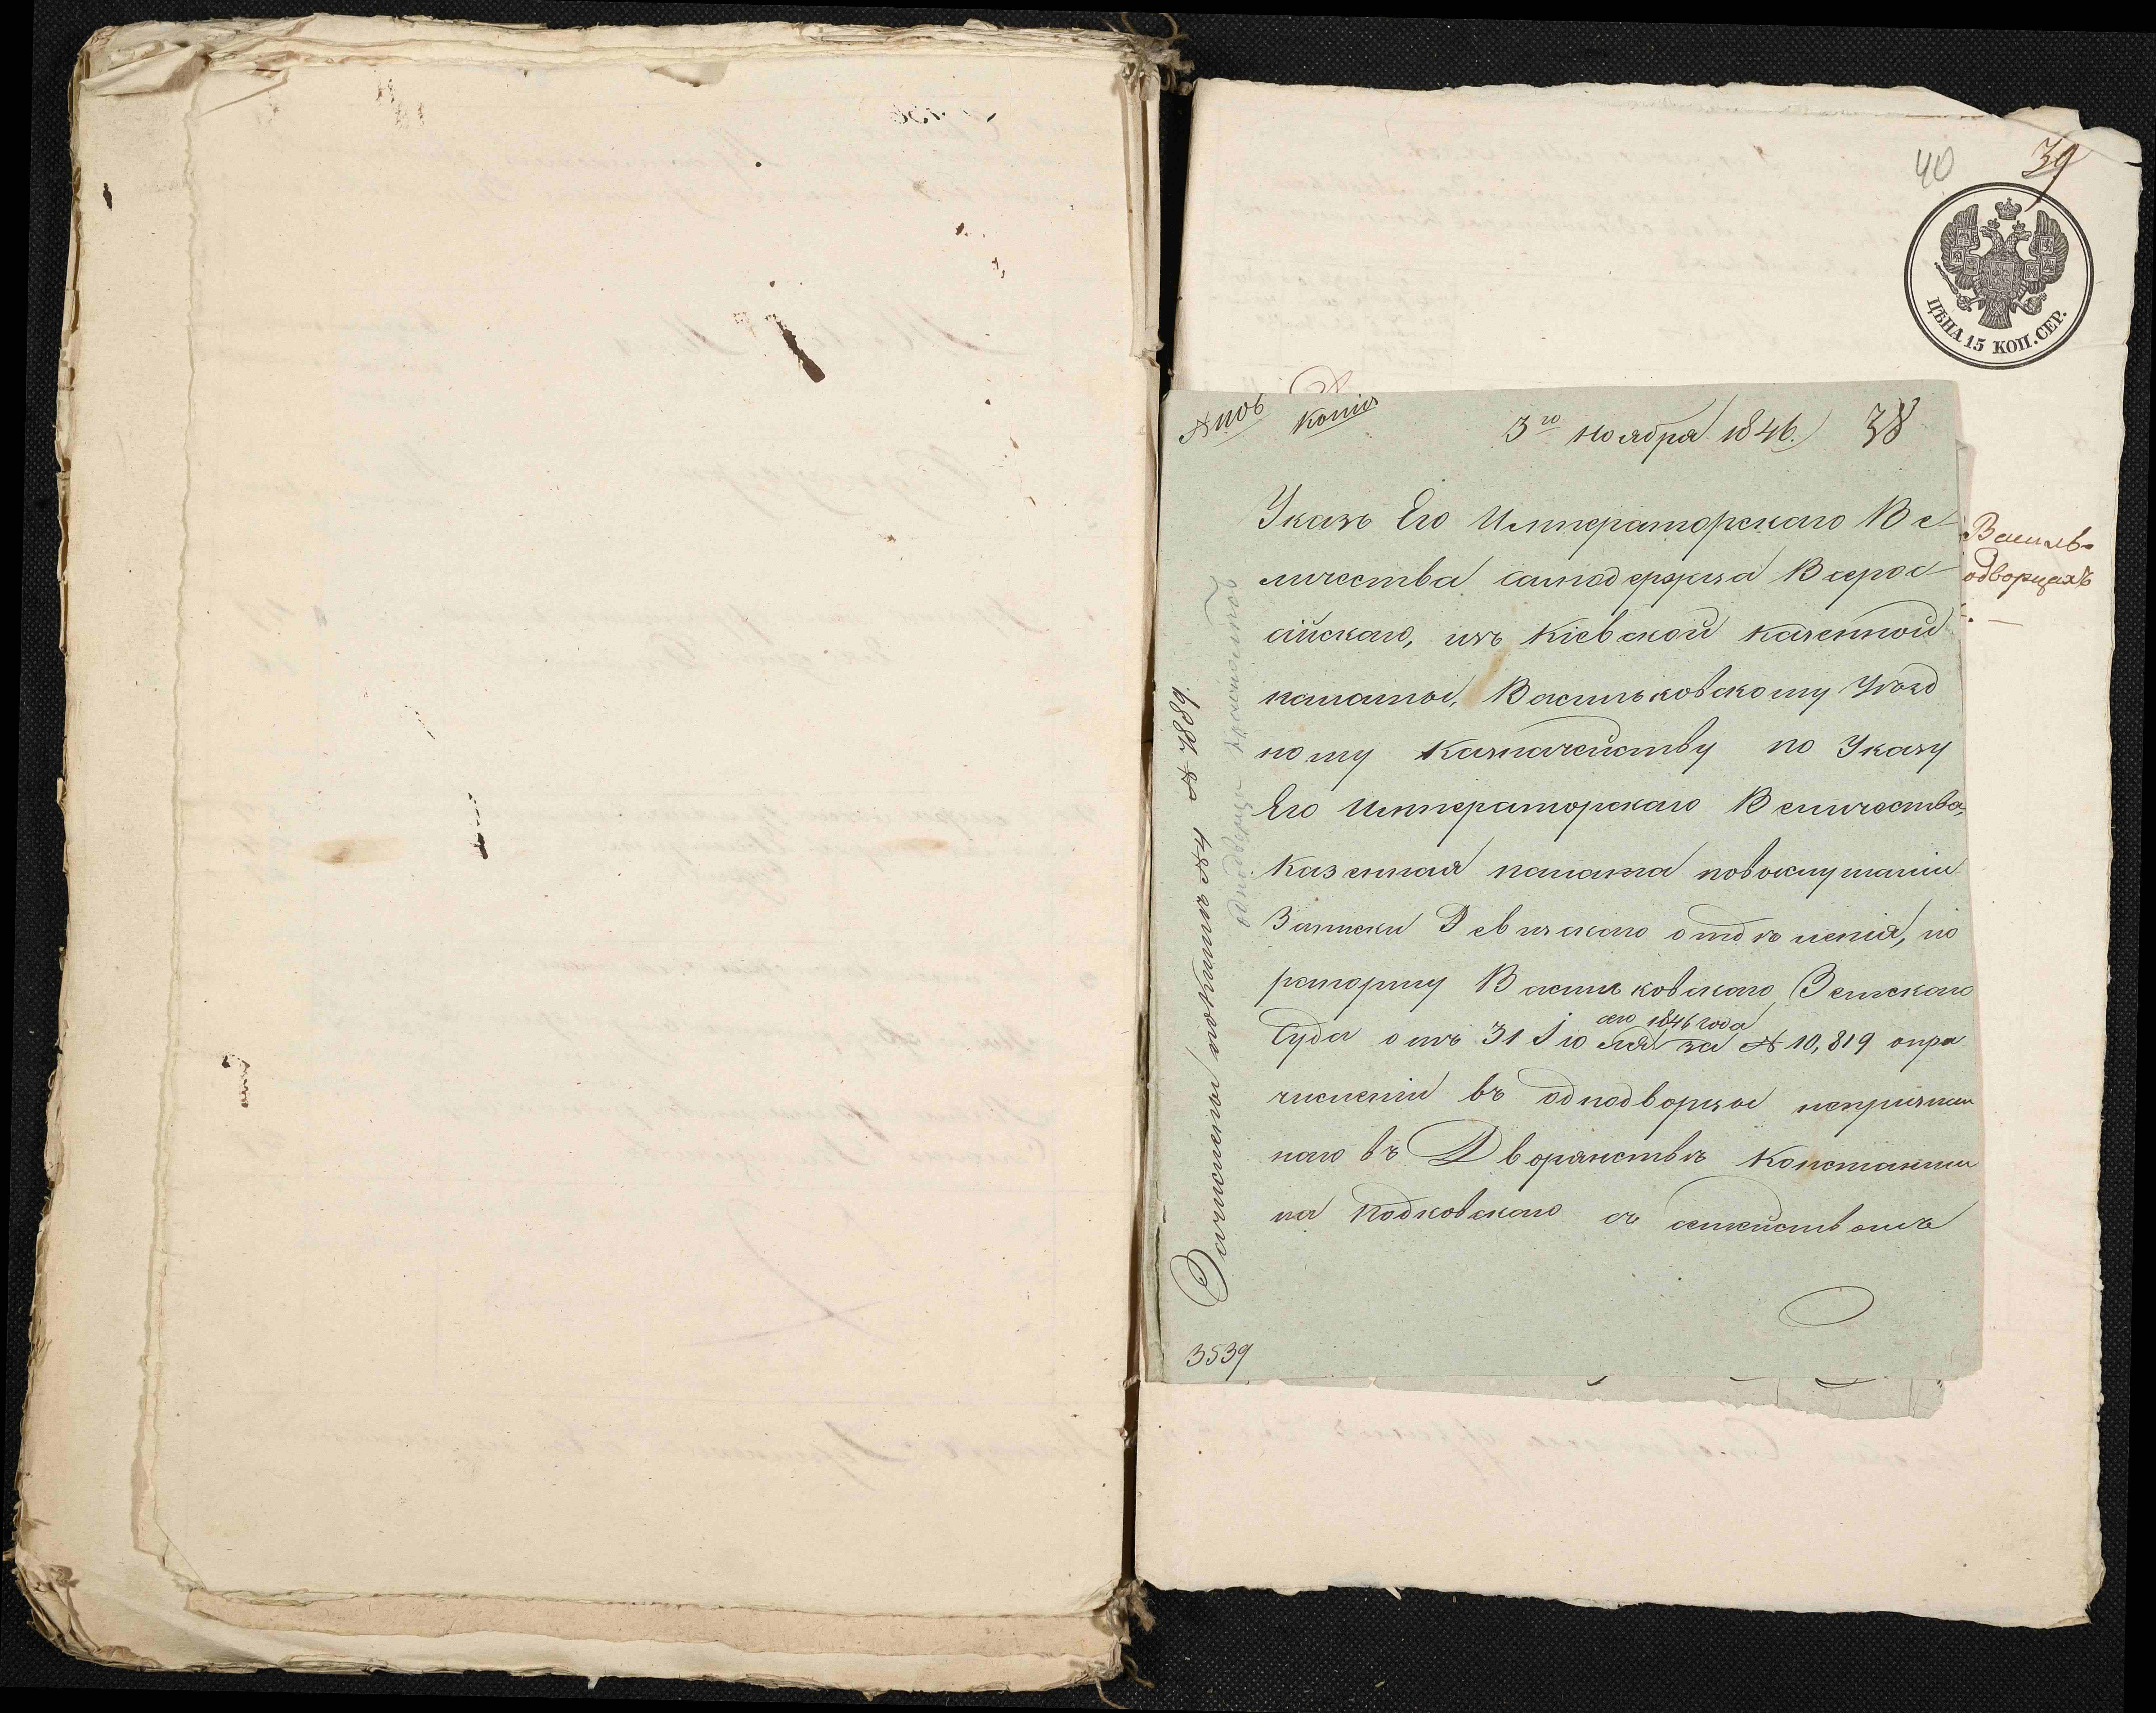 40
39
ЦѢНА 15 КОП. СЕР.
Василь-
одворцахъ
№ 1106
Копія
3го ноября 1846.
38
Указъ Его Императорскаго Ве-
личества самодержца Всерос-
сійскаго, изъ Кіевской казенной
палаты, Васильковскому Уѣзд
ному Казначейству по Указу
Его Императорскаго Величества,
Казенная палата повыслушаніи
Записки Ревизскаго отдѣленія, по
рапорту Васильковскаго Земскаго
сего 1846 года
Суда отъ 31 Іюля за № 10,819 опри
численіи въ однодворцы непризнан
наго въ Дворянствѣ Константи
на Подковскаго съ семействомъ
Зачислены покнигѣ №4 № 7889.
3539